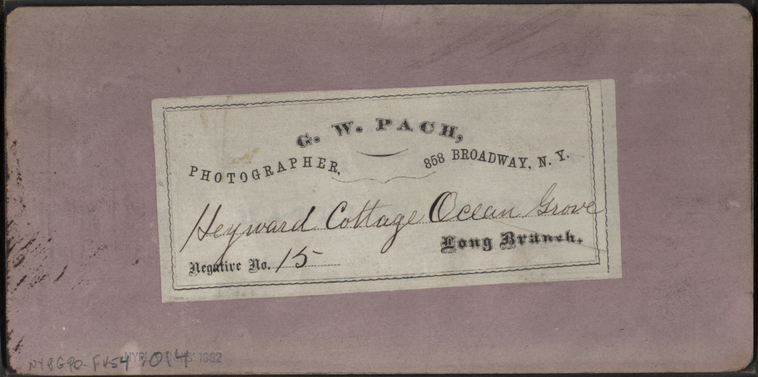 G. W. PACH,
PHOTOGRAPHER, 858 BROADWAY, N. Y.
Heyward Cottage Ocean Grove
Long Branch.
Negative No. 15
1982